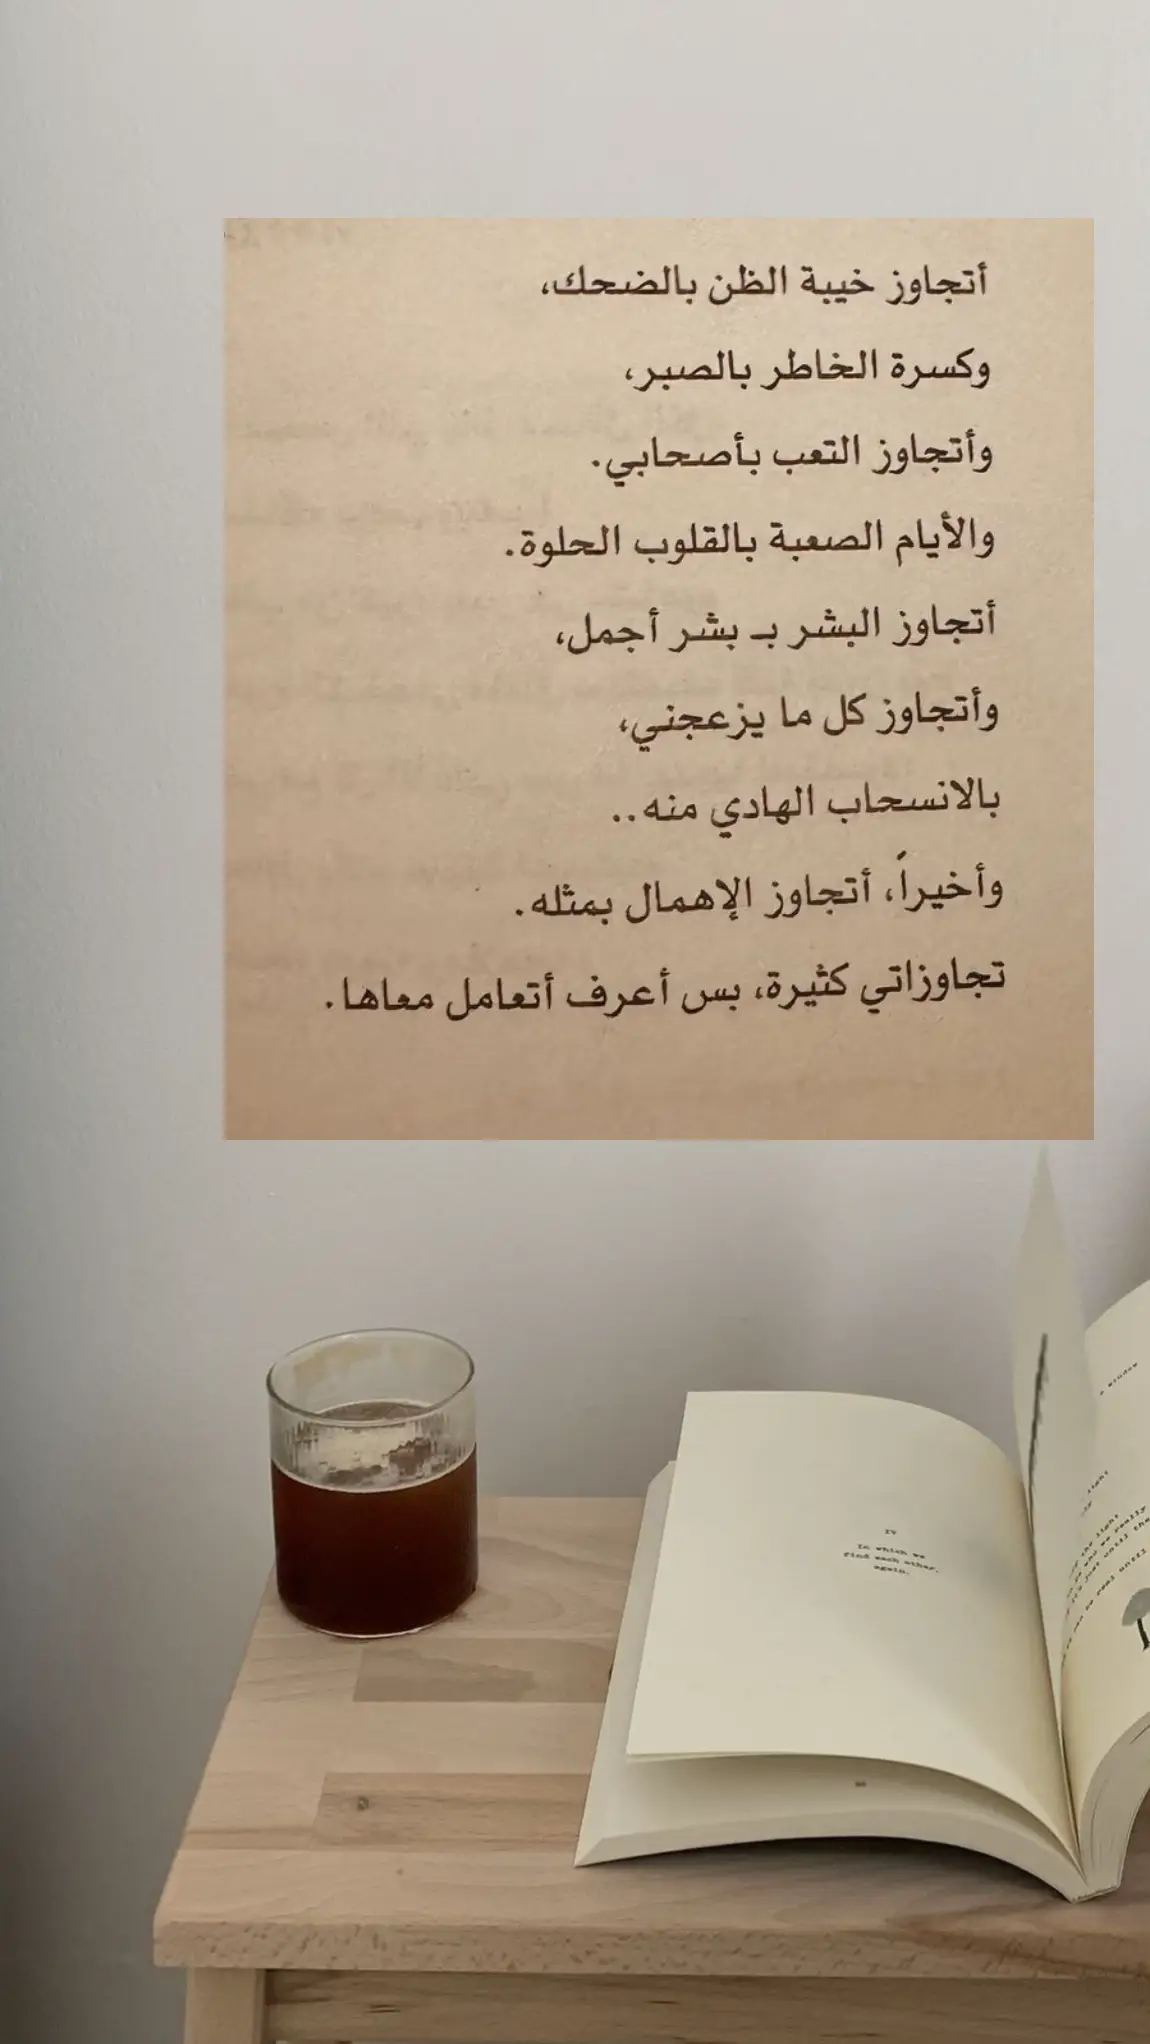 أتجاوز خيبة الظن بالضحك،
وكسرة الخاطر بالصبر،
وأتجاوز التعب بأصحابي.
والأيام الصعبة بالقلوب الحلوة.
أتجاوز البشر بـ بشر أجمل،
وأتجاوز كل ما يزعجني،
بالانسحاب الهادي منه..
وأخيراً، أتجاوز الإهمال بمثله.
تجاوزاتي كثيرة، بس أعرف أتعامل معاها.
IV
In which we
find each other,
again.
window
light
the light
who we really
it's just until the
real until